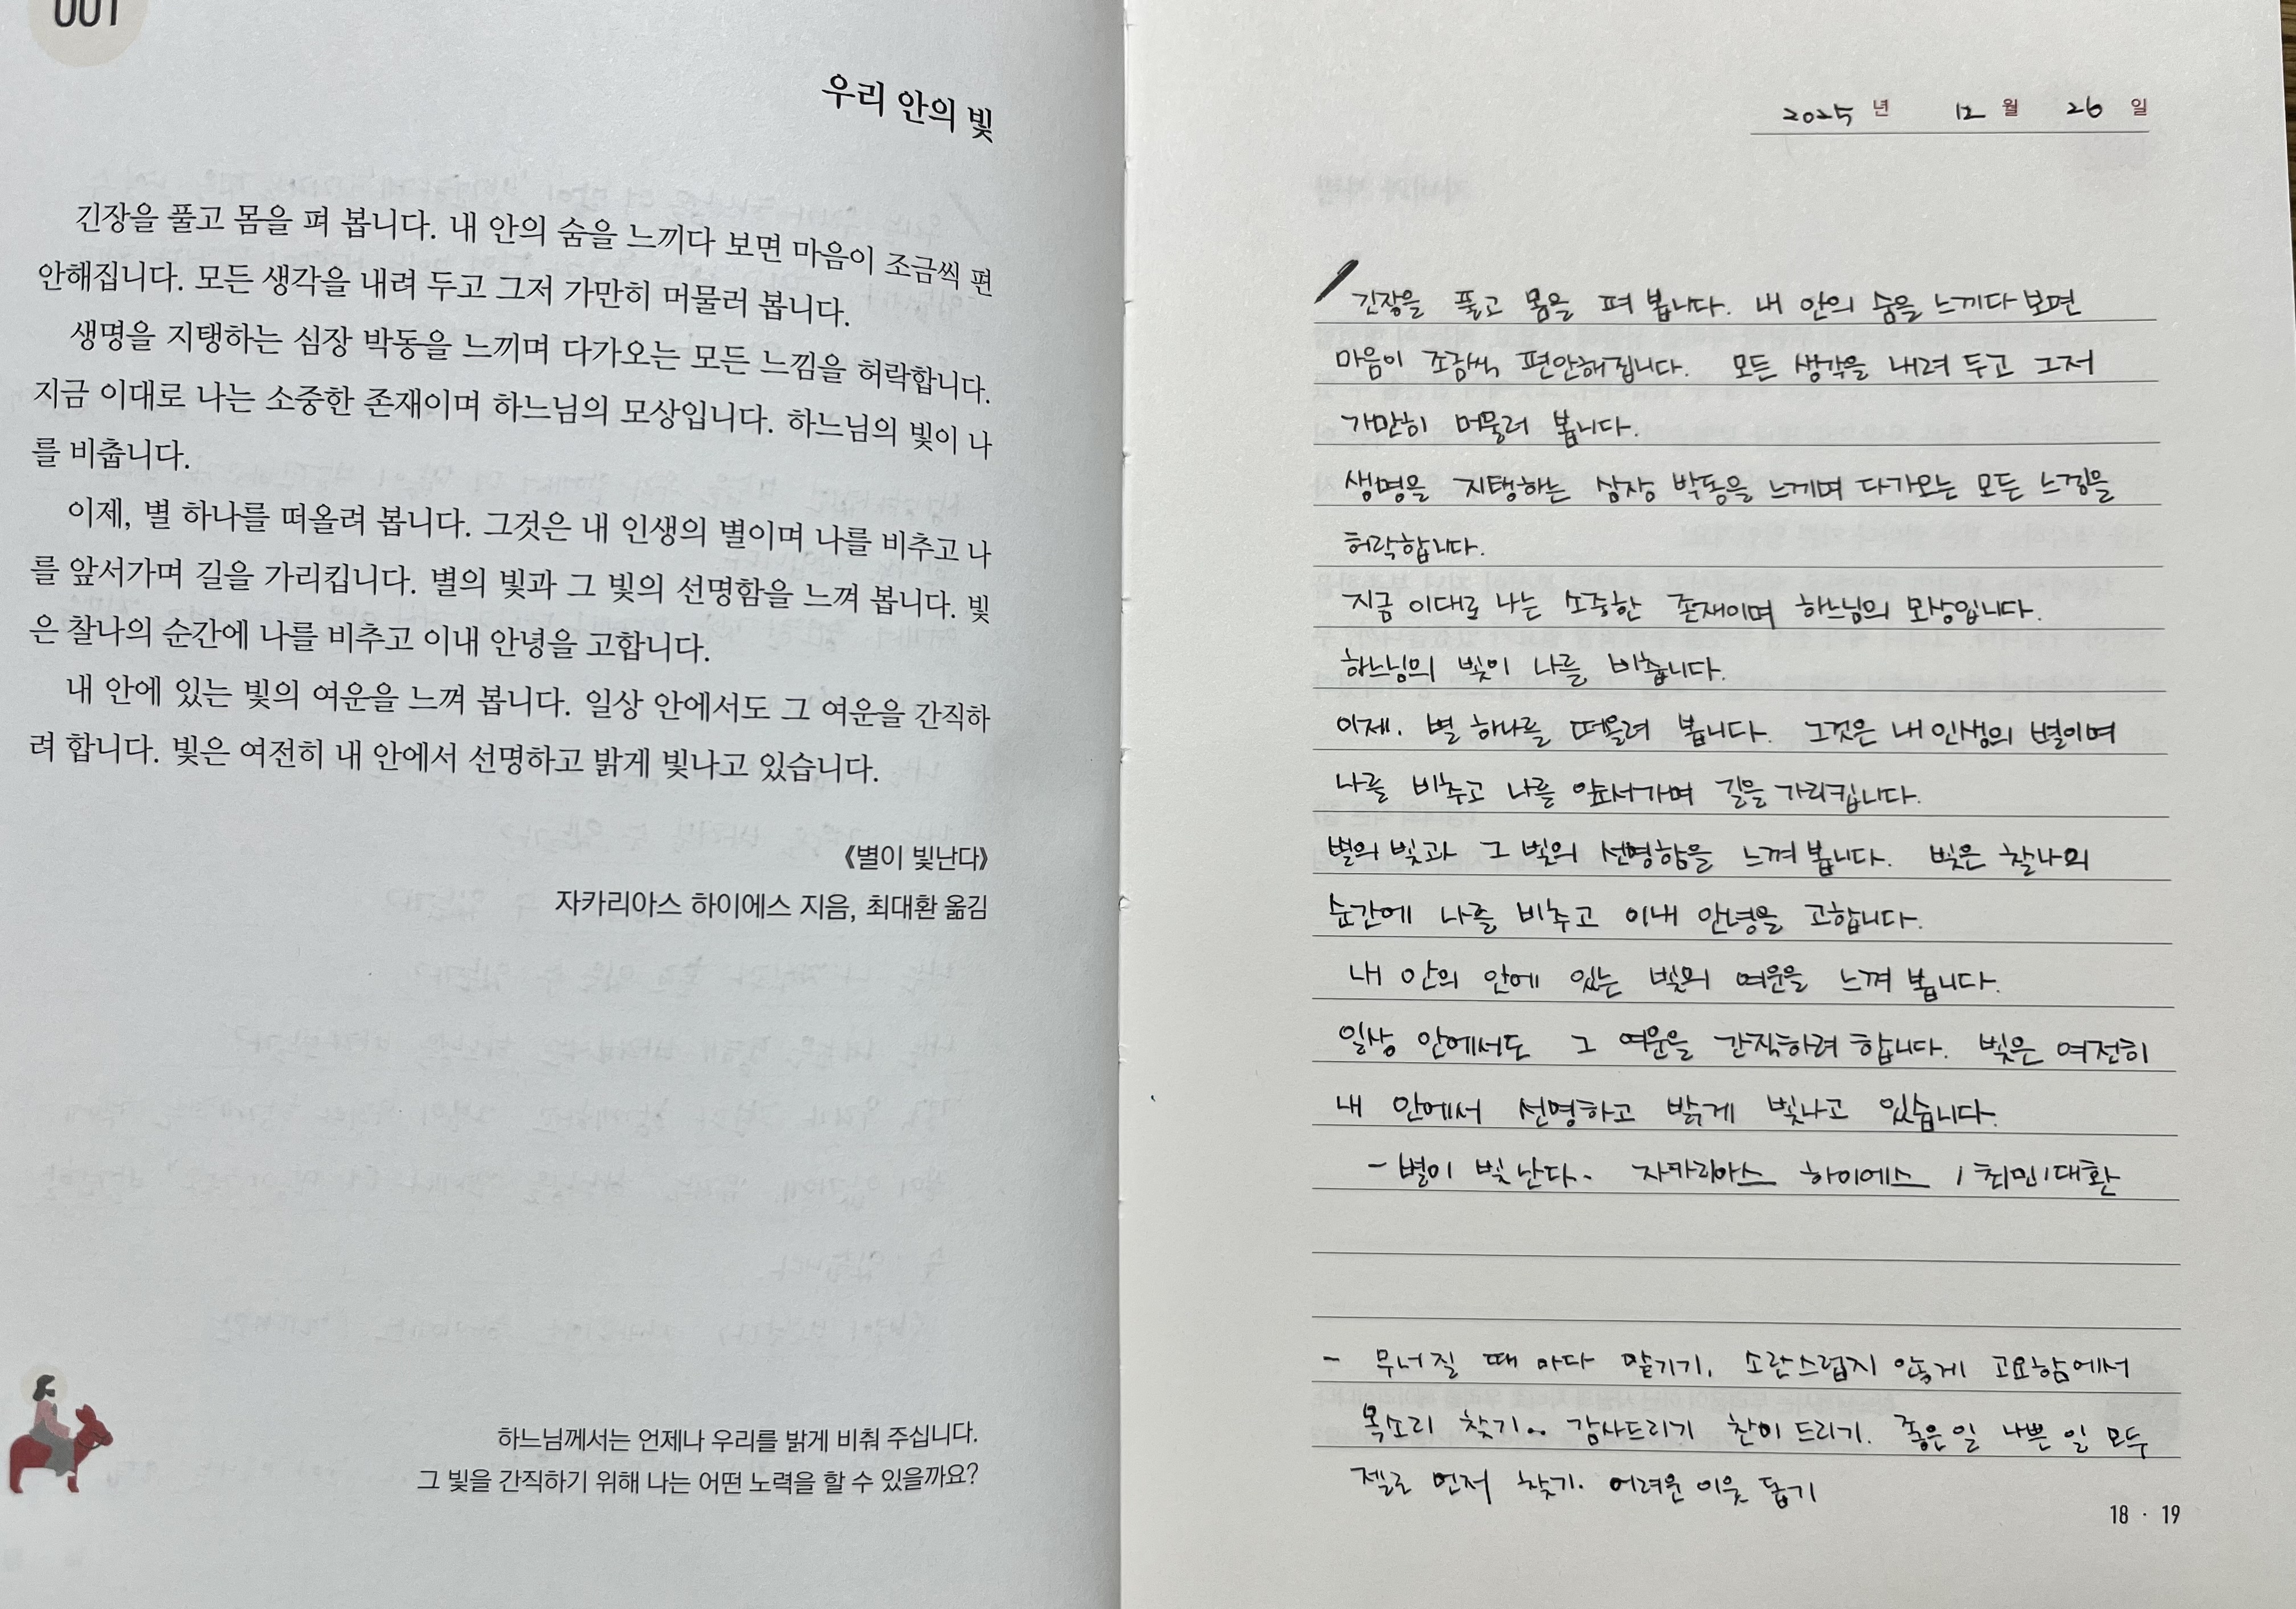 001
우리 안의 빛
긴장을 풀고 몸을 펴 봅니다. 내 안의 숨을 느끼다 보면 마음이 조금씩 편
안해집니다. 모든 생각을 내려 두고 그저 가만히 머물러 봅니다.
생명을 지탱하는 심장 박동을 느끼며 다가오는 모든 느낌을 허락합니다.
지금 이대로 나는 소중한 존재이며 하느님의 모상입니다. 하느님의 빛이 나
를 비춥니다.
이제, 별 하나를 떠올려 봅니다. 그것은 내 인생의 별이며 나를 비추고 나
를 앞서가며 길을 가리킵니다. 별의 빛과 그 빛의 선명함을 느껴 봅니다. 빛
은 찰나의 순간에 나를 비추고 이내 안녕을 고합니다.
내 안에 있는 빛의 여운을 느껴 봅니다. 일상 안에서도 그 여운을 간직하
려 합니다. 빛은 여전히 내 안에서 선명하고 밝게 빛나고 있습니다.
《별이 빛난다》
자카리아스 하이에스 지음, 최대환 옮김
하느님께서는 언제나 우리를 밝게 비춰 주십니다.
그 빛을 간직하기 위해 나는 어떤 노력을 할 수 있을까요?
2025 년 12 월 26 일
긴장을 풀고 몸을 펴 봅니다. 내 안의 숨을 느끼다 보면
마음이 조금씩 편안해집니다. 모든 생각을 내려 두고 그저
가만히 머물러 봅니다.
생명을 지탱하는 심장 박동을 느끼며 다가오는 모든 느낌을
허락합니다.
지금 이대로 나는 소중한 존재이며 하느님의 모상입니다.
하느님의 빛이 나를 비춥니다.
이제. 별 하나를 떠올려 봅니다. 그것은 내 인생의 별이며
나를 비추고 나를 앞서가며 길을 가리킵니다.
별의 빛과 그 빛의 선명함을 느껴 봅니다. 빛은 찰나의
순간에 나를 비추고 이내 안녕을 고합니다.
내 안의 안에 있는 빛의 여운을 느껴 봅니다.
일상 안에서도 그 여운을 간직하려 합니다. 빛은 여전히
내 안에서 선명하고 밝게 빛나고 있습니다.
- 별이 빛난다 - 자카리아스 하이에스 / 최대환
- 무너질 때 마다 맡기기, 소란스럽지 않게 고요함에서
목소리 찾기.. 감사드리기 찬미 드리기. 좋은 일 나쁜 일 모두
젤로 먼저 찾기. 어려운 이웃 돕기
18 · 19